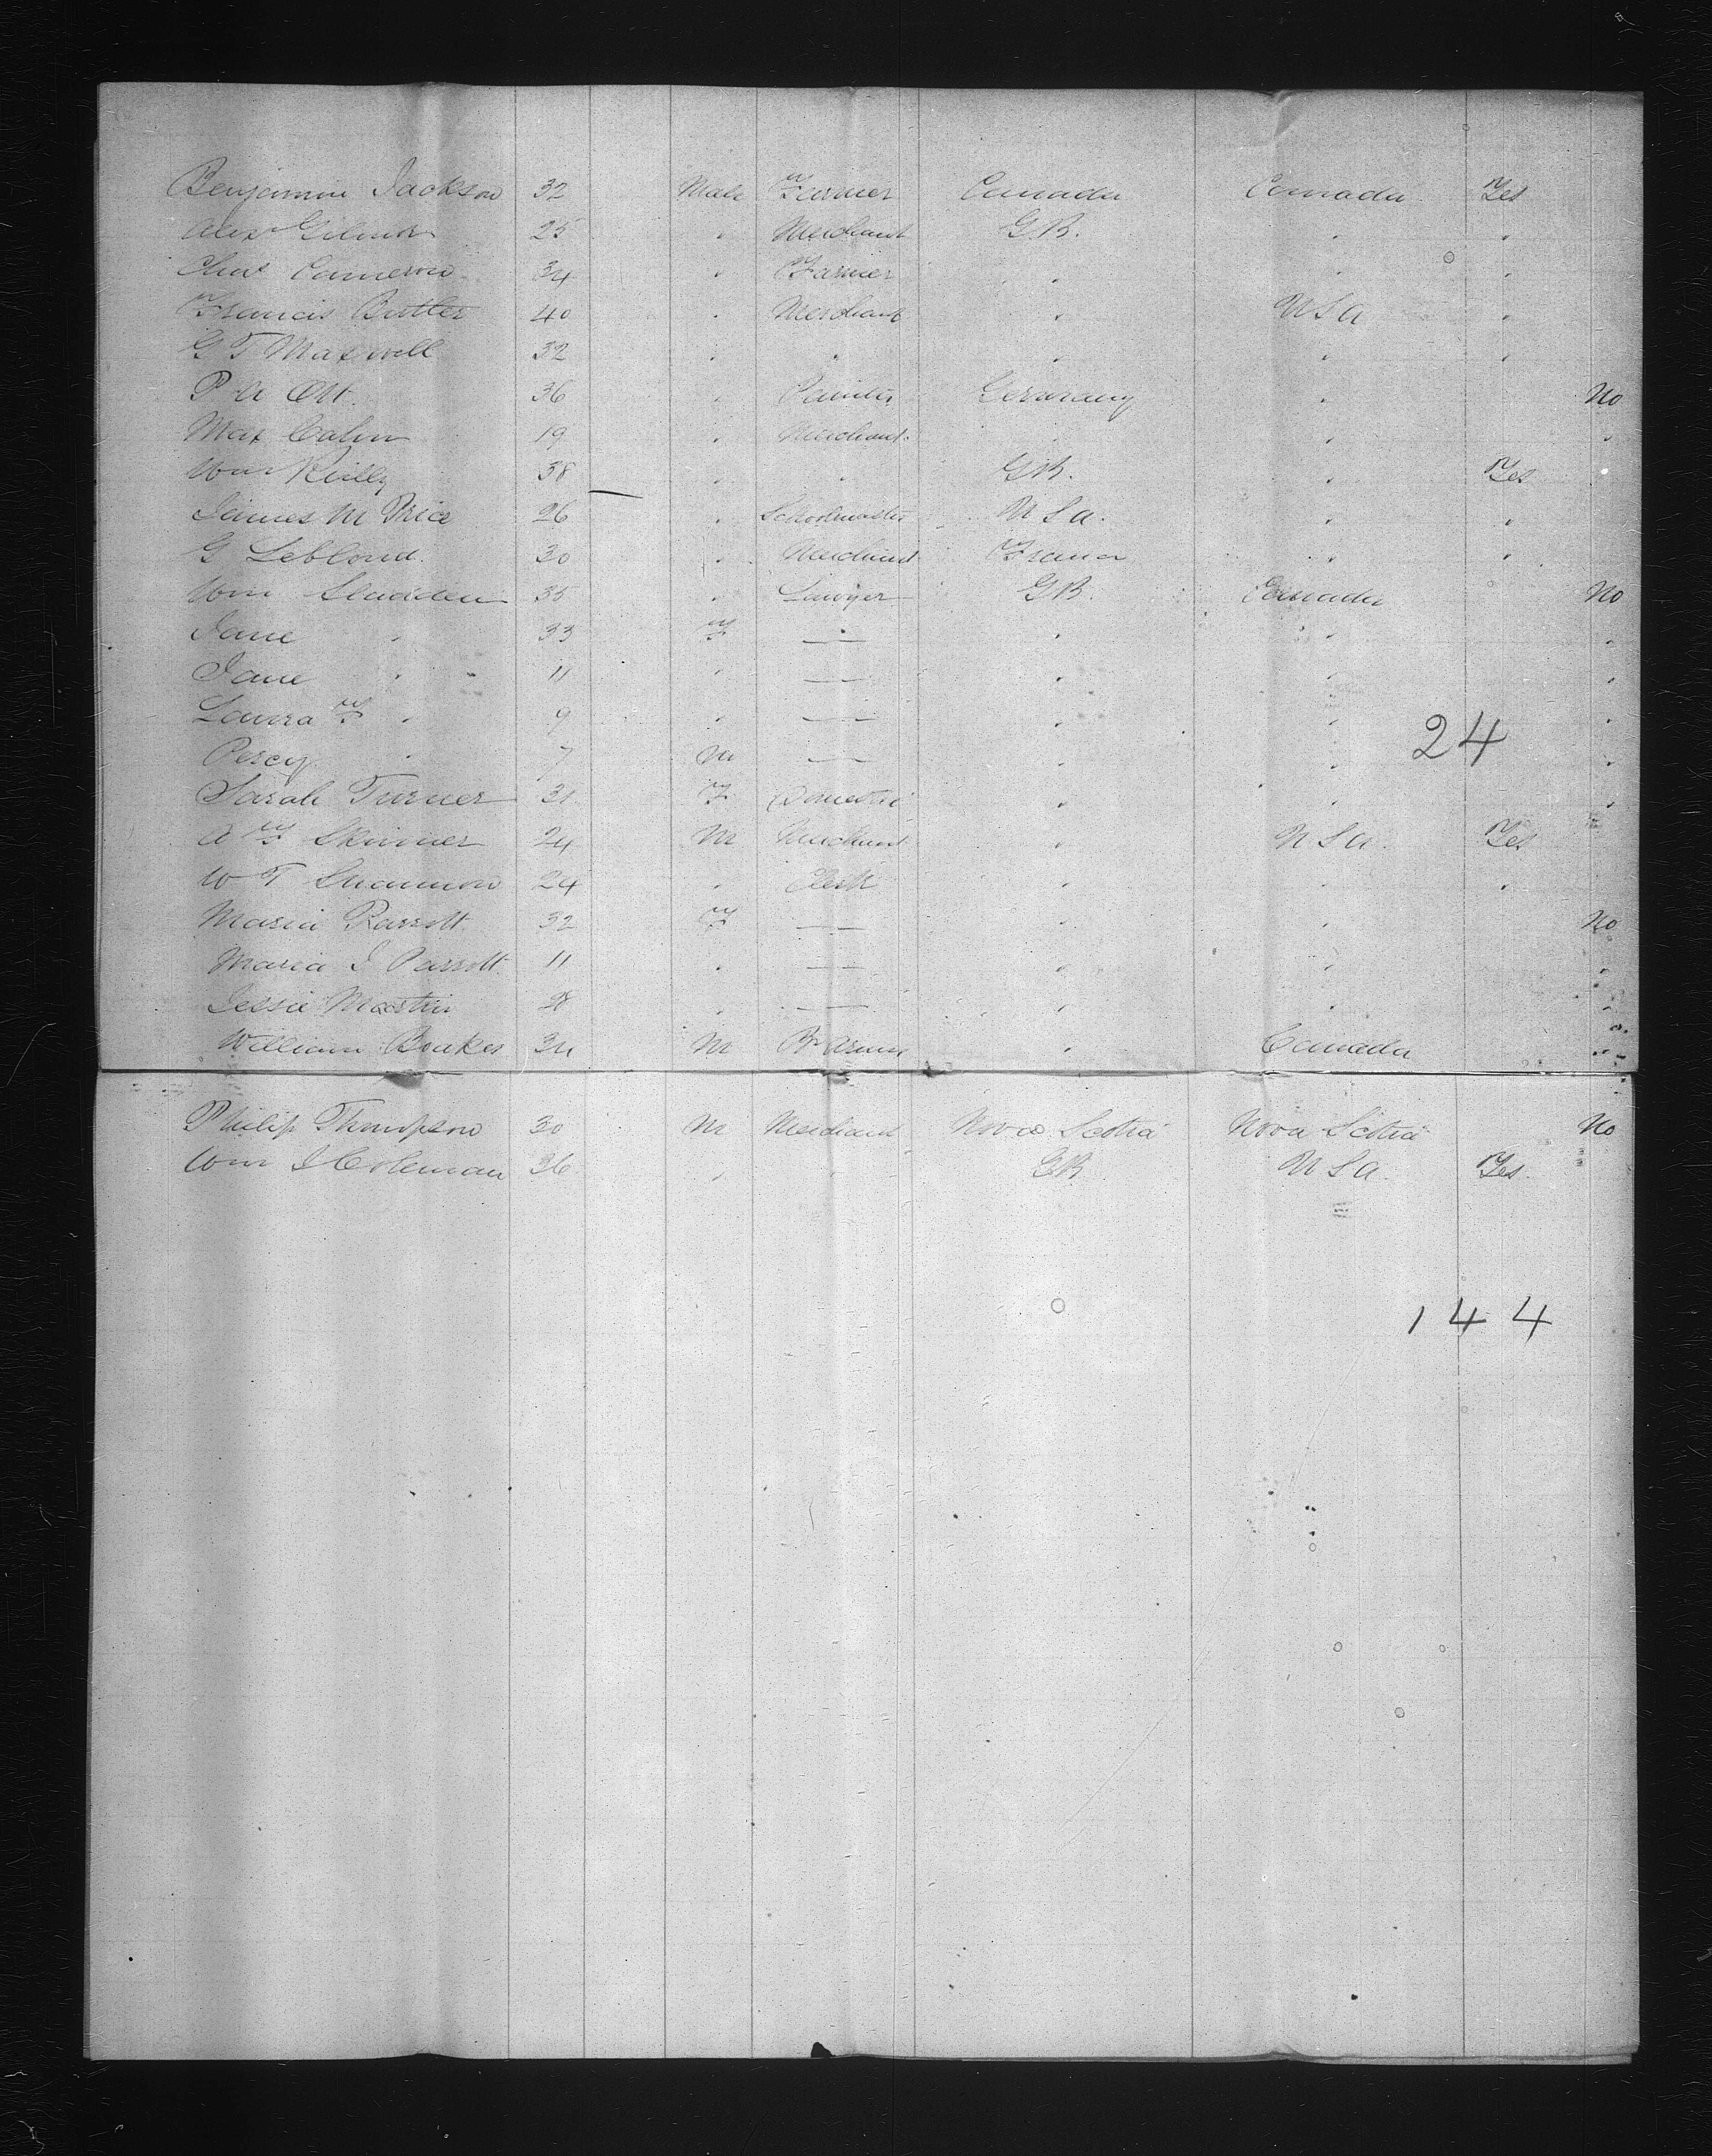 Benjamin Jackson 32 Male Farmer Canada Canada Yes
Alex Gilmor 25 " Merchant G.B. " "
Chas Cameron 34 " Farmer " " "
Francis Butler 40 " Merchant " U S A "
G T Maxwell 32 " " " " "
P A Ott. 36 " Germany " No
Max Cahn 19 " Merchant " " "
Wm Reilly 38 " " G B. " Yes
James M Price 26 " Schoolmaster U S A. " "
G Leblond. 30 " Merchant France " "
Wm Sladden 35 " Lawyer G B. Canada No
Jane " 33 F — " " "
Jane " 11 " — " " "
Laura F " 9 " — " " "
24
Percy " 7 M — " " "
Sarah Turner 31 F Domestic " " "
A F Skinner 24 M Merchant " U S A. Yes
W T Shannon 24 " Clerk " " "
Maria Parrott 32 F — " " No
Maria J Parrott 11 " — " " "
Jessie Martin 28 " — " " "
William Boaker 34 M " Canada "
Philip Thompson 30 M Merchant Nova Scotia Nova Scotia No
Wm J Coleman 36 " " G B U S A. Yes.
144